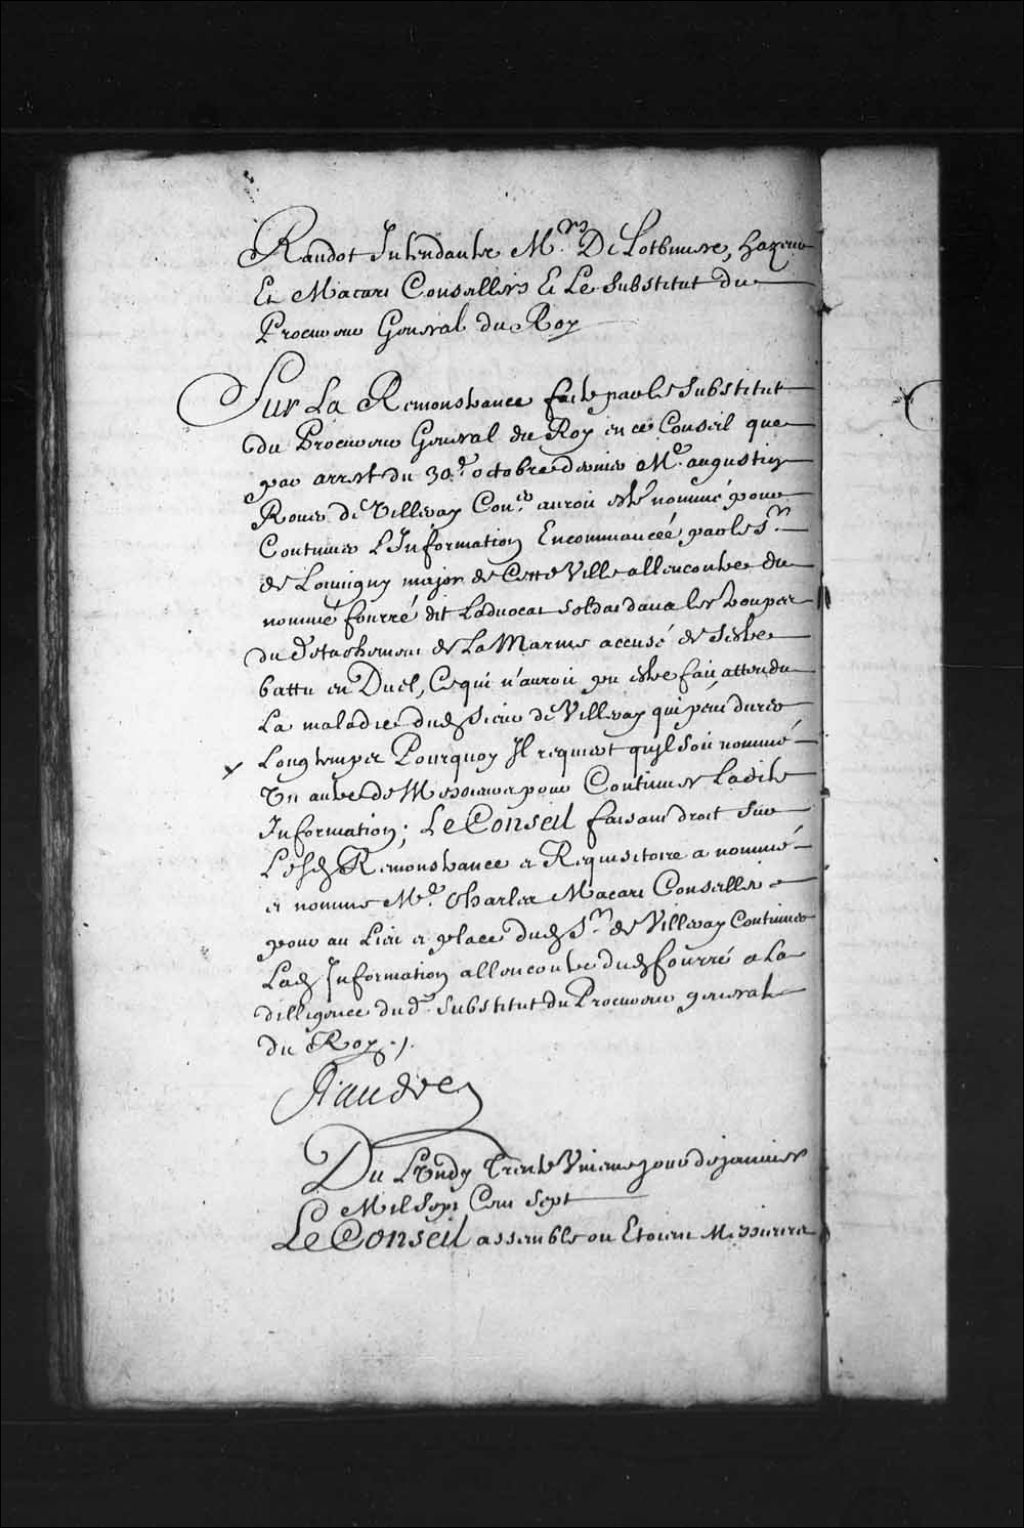 Raudot Intendants M.rs De Lotbiniere, hazeur
Et Macart Conseillers Et Le substitut du
Procureur General du Roy
Sur La Remonstrance faite par le substitut
du Procureur General du Roy en ce Conseil que
par arrest du 30.e octobre dernier Me. augustin
Rouer de Villeray Con.er auroit esté nommé pour
Continuer L'Information Encommancée par le S.r
de Louvigny major de Cette Ville allencontre du
nommé fourré dit Laduocat soldat dans les troupes
du détachement de La Marine accusé de s'estre
battu en Duel, Ce qui n'auroit pu estre fait, attendu
La maladie dud. Sieur de Villeray qui peut durer
Long temps Pourquoy Il requiert qu'Il soit nommé
Un autre de Messieurs pour Continuer Ladite
Information; Le Conseil faisant droit sur
Lesd. Remonstrance et Requisitoire a nommé
et nomme Me. Charles Macart Conseiller
pour au Lieu et place dud. S.r de Villeray Continuer
Lad. Information allencontre dud. fourré a La
dilligence dud. substitut du Procureur general
du Roy ./.
Raudot
Du Lundy Trente Unieme jour de janvier
Mil Sept Cent sept
Le Conseil assemblé ou Etoient Messieurs